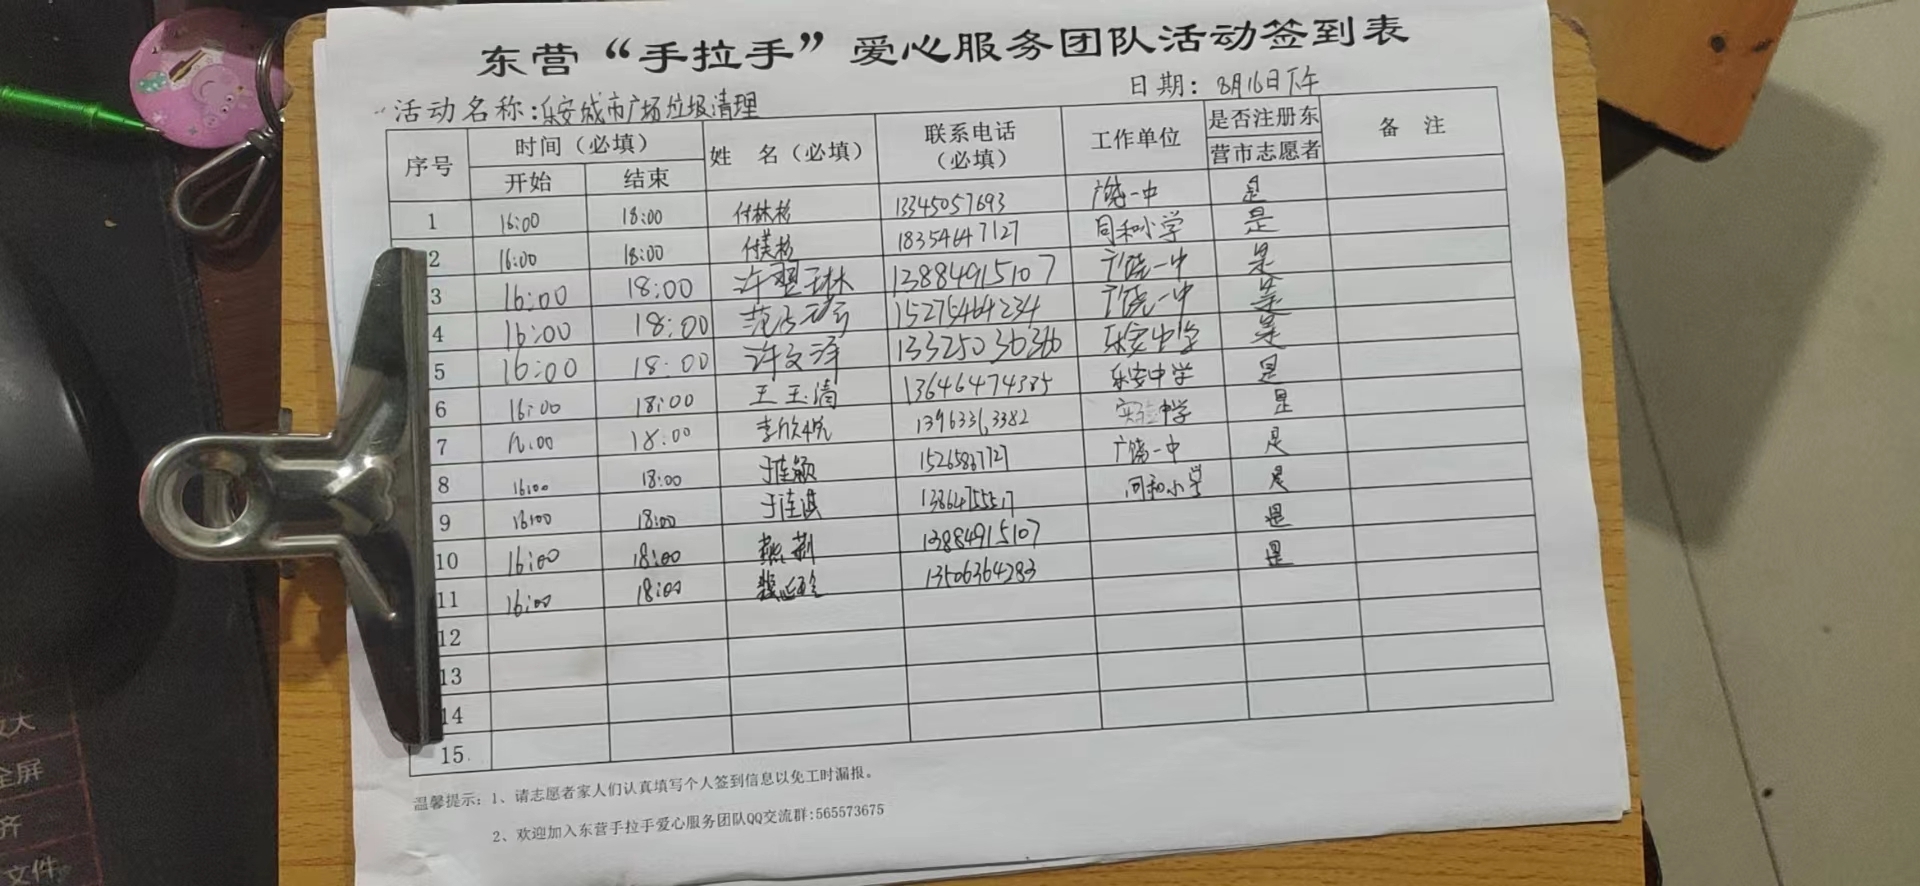 东营“手拉手”爱心服务团队活动签到表
活动名称:乐安城市广场垃圾清理 日期: 8月16日下午
序号 时间(必填) 姓 名(必填) 联系电话(必填) 工作单位 是否注册东营市志愿者 备 注
开始 结束
1 16:00 18:00 付林杉 13345057693 广饶一中 是
2 16:00 18:00 18354647127 同和小学 是
3 16:00 18:00 许翌琳 13884915107 广饶一中 是
4 16:00 18:00 15275464234 广饶一中 是
5 16:00 18:00 许文泽 乐安中学 是
6 16:00 18:00 王玉清 13646474385 乐安中学 是
7 16:00 18:00 李欣悦 13963313382 实验中学 是
8 16:00 18:00 于佳颖 广饶一中 是
9 16:00 18:00 于佳淇 13864755517 同和小学 是
10 16:00 18:00 13884915107 是
11 16:00 18:00 13506364283 是
12
13
14
15
温馨提示: 1、请志愿者家人们认真填写个人签到信息以免工时漏报。
2、欢迎加入东营手拉手爱心服务团队QQ交流群:565573675
大
全屏
齐
文件